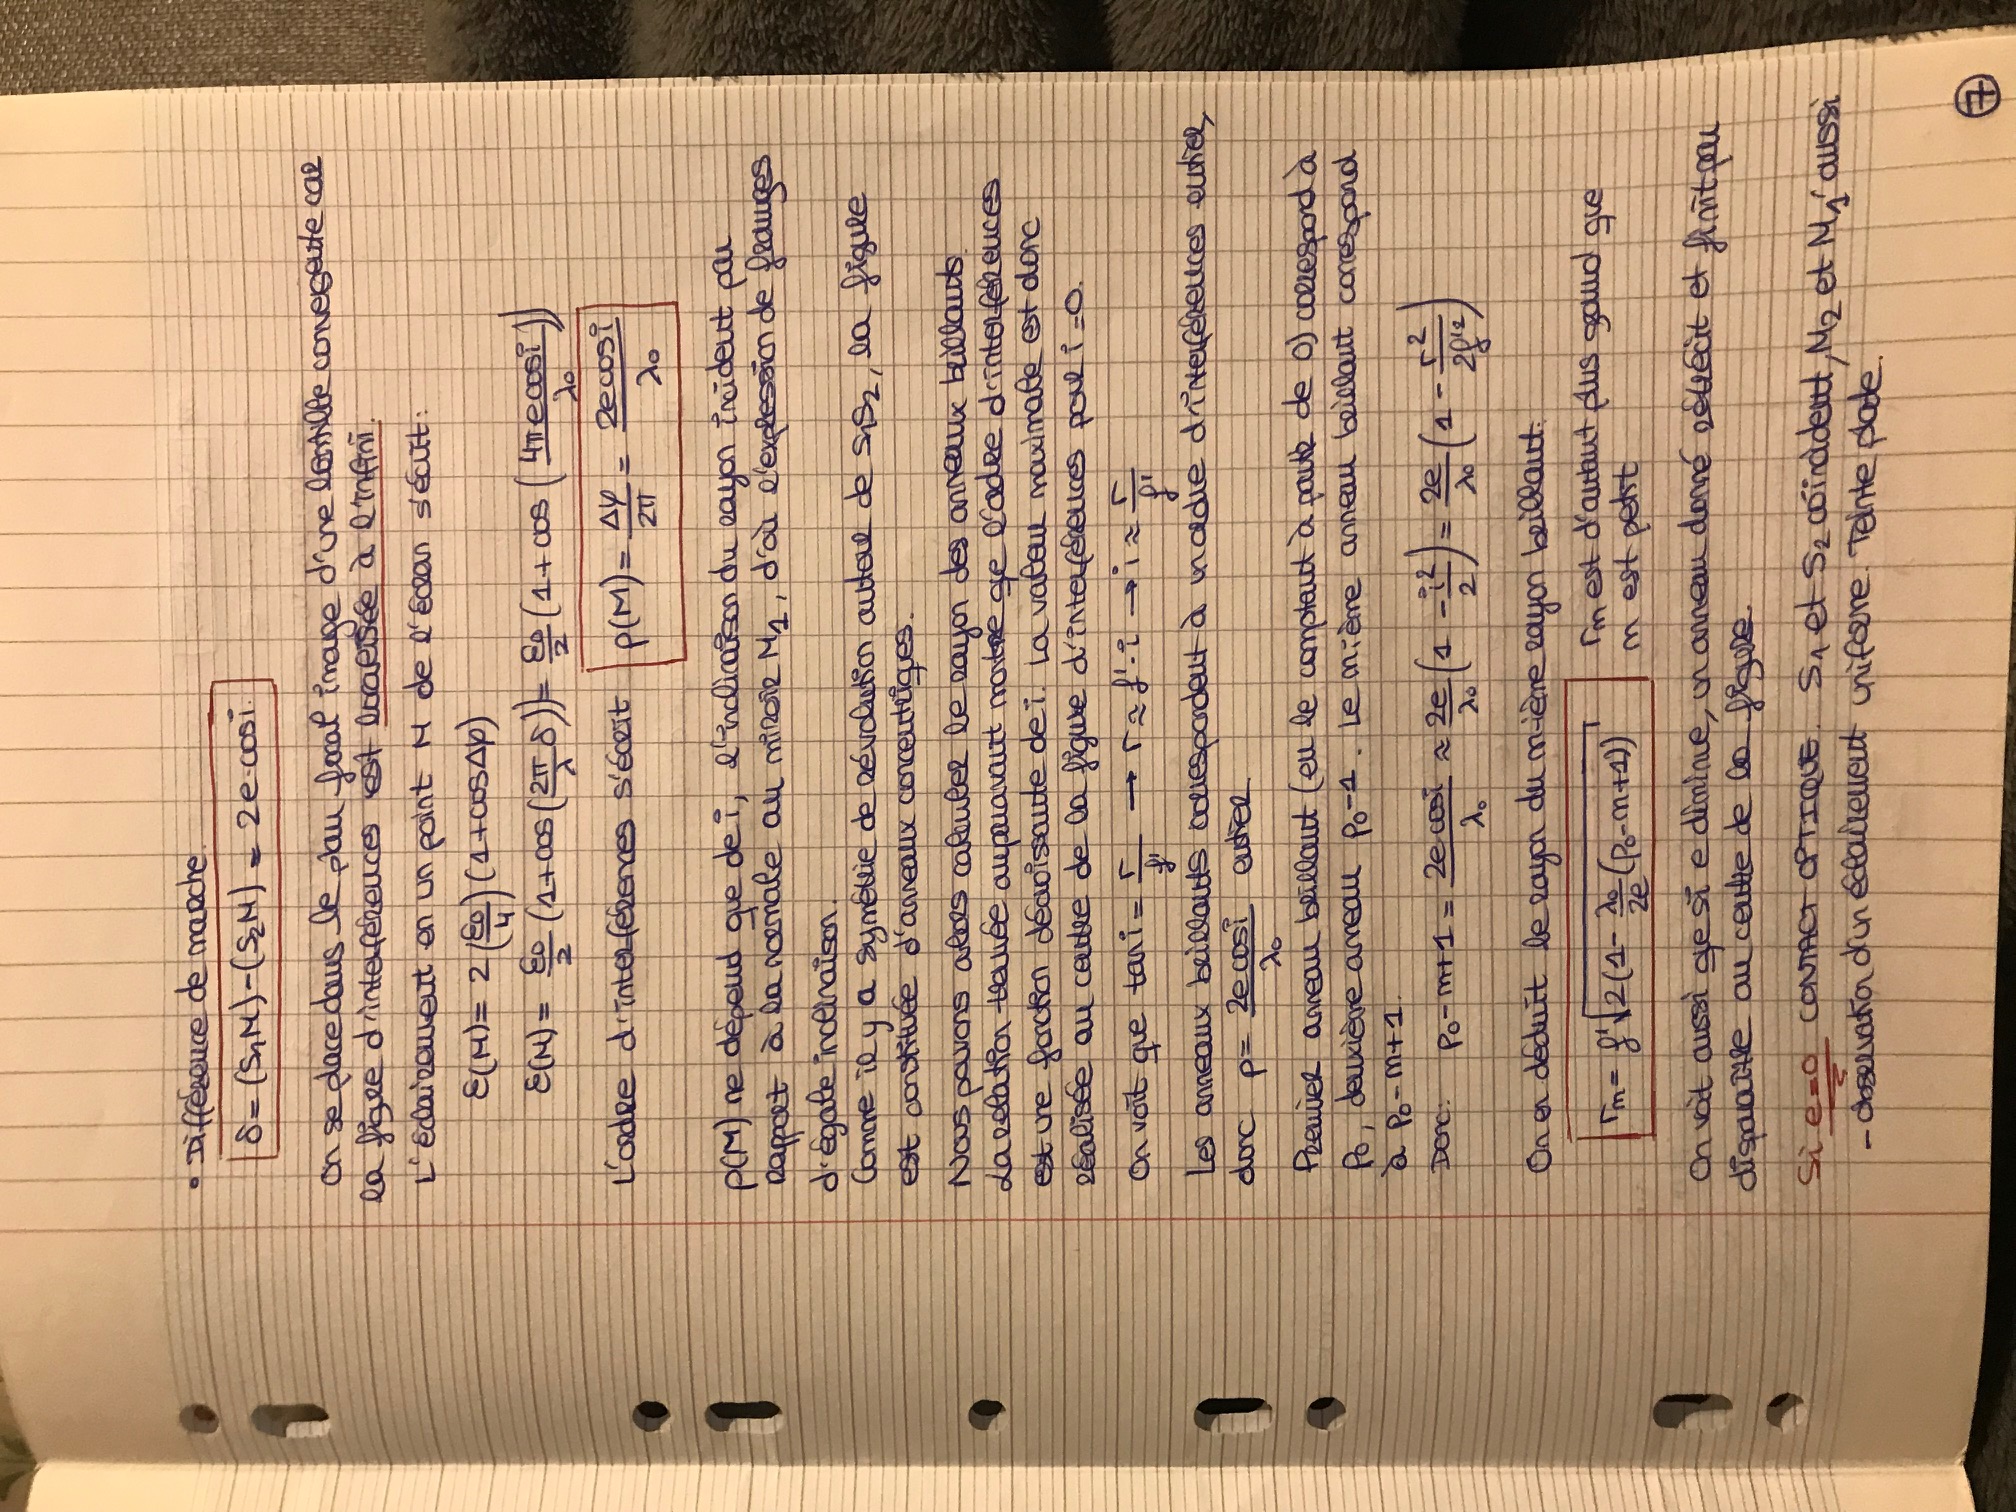 • Différence de marche.
δ = (S₁M) - (S₂M) = 2e·cosi.
On se place dans le plan focal image d'une lentille convergente car
la figure d'interférences est localisée à l'infini.
L'éclairement en un point M de l'écran s'écrit :
ε(M) = 2 (ε₀/4) (1 + cosΔφ)
ε(M) = ε₀/2 (1 + cos(2π/λ δ)) = ε₀/2 (1 + cos (4π e cosi / λ₀))
L'ordre d'interférences s'écrit p(M) = Δφ/2π = 2e cosi / λ₀
p(M) ne dépend que de i, l'inclinaison du rayon incident par
rapport à la normale au miroir M₂, d'où l'expression de franges
d'égale inclinaison.
Comme il y a symétrie de révolution autour de S₁S₂, la figure
est constituée d'anneaux concentriques.
Nous pouvons alors calculer le rayon des anneaux brillants.
La relation trouvée auparavant montre que l'ordre d'interférences
est une fonction décroissante de i. La valeur maximale est donc
réalisée au centre de la figure d'interférences pour i = 0.
On voit que tan i = r/f' → r ≈ f'·i → i ≈ r/f'
Les anneaux brillants correspondent à un ordre d'interférences entier,
donc p = 2e cosi / λ₀ entier
Premier anneau brillant (en le comptant à partir de 0) correspond à
p₀, deuxième anneau p₀-1. Le mième anneau brillant correspond
à p₀ - m + 1.
Donc : p₀ - m + 1 = 2e cosi / λ₀ ≈ 2e/λ₀ (1 - i²/2) = 2e/λ₀ (1 - r²/2f'²)
On en déduit le rayon du m-ième rayon brillant.
rₘ = f' √(2(1 - λ₀/2e (p₀ - m + 1))) rₘ est d'autant plus grand que
m est petit
On voit aussi que si e diminue, un anneau donné rétrécit et finit par
disparaître au centre de la figure.
Si e=0 CONTACT OPTIQUE. S₁ et S₂ coïncident, M₂ et M₁' aussi
- observation d'un éclairement uniforme. Teinte plate.
7